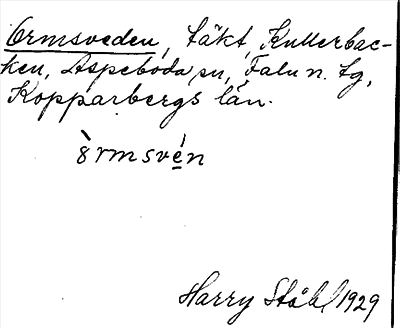 Ormsveden, täkt, Kullerbac-
ken, Aspeboda sn, Falu n. tg,
Kopparbergs län.
òrmsvén
Harry Ståhl 1929